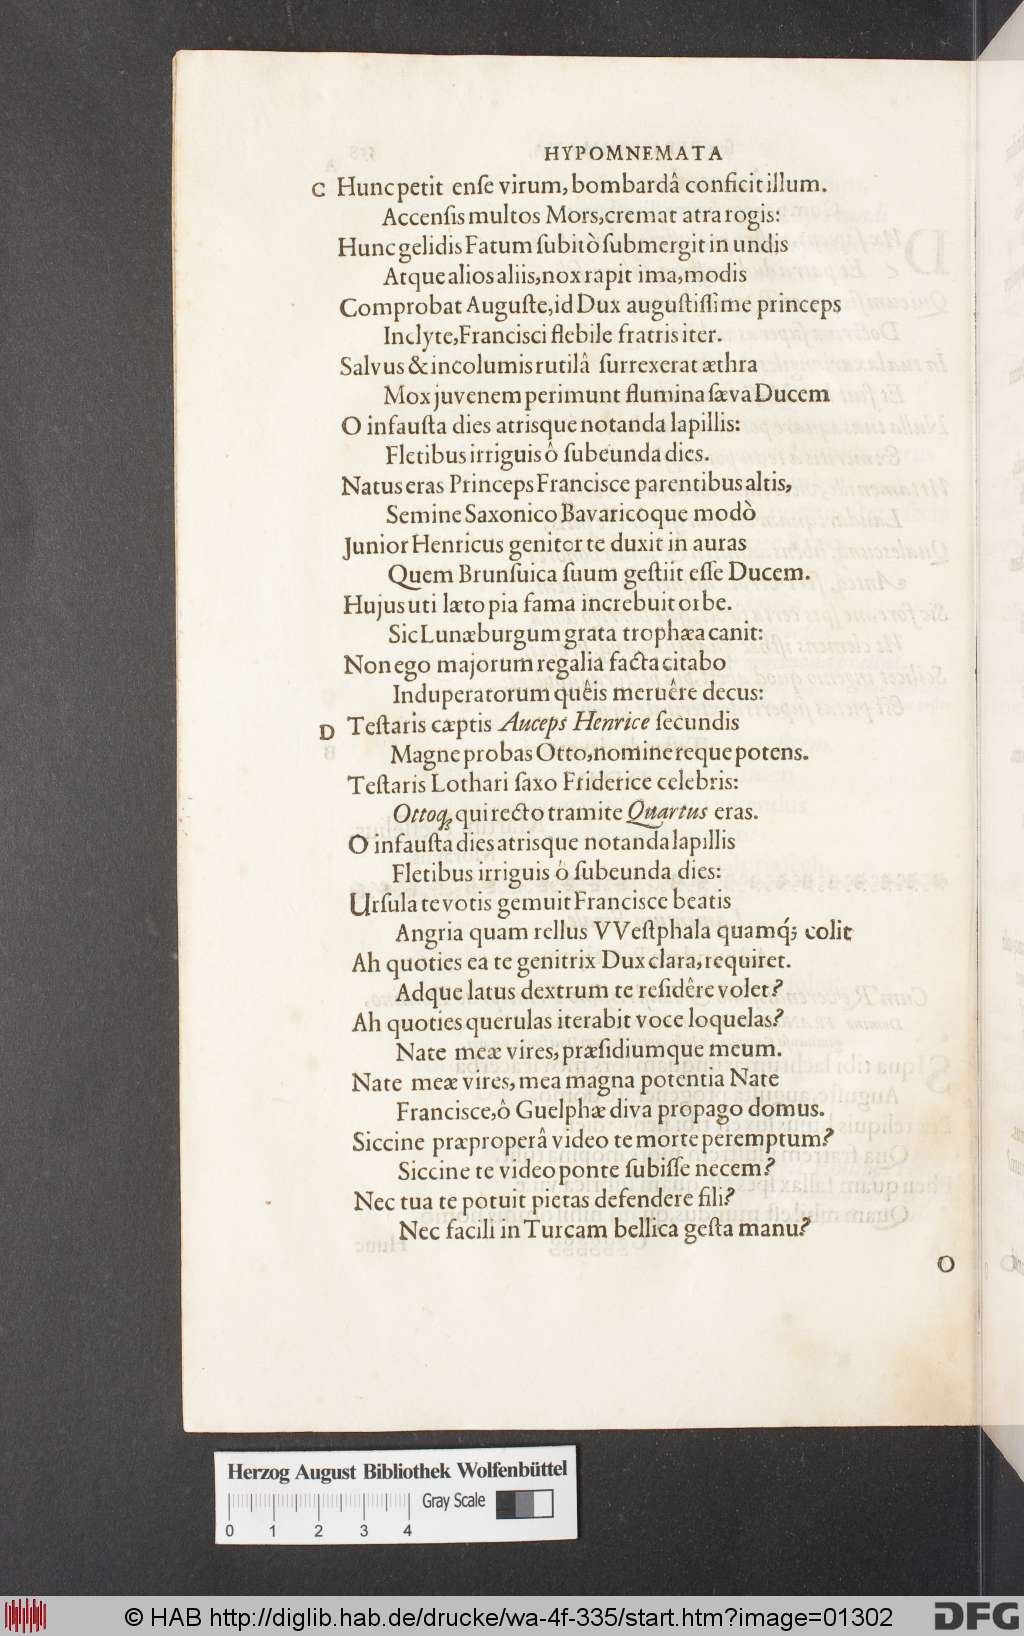 HYPOMNEMATA
C Hunc petit enſe virum, bombardâ conficit illum.
Accenſis multos Mors, cremat atra rogis:
Hunc gelidis Fatum ſubitò ſubmergit in undis
Atque alios aliis, nox rapit ima, modis
Comprobat Auguſte, id Dux auguſtiſſime princeps
Inclyte, Franciſci flebile fratris iter.
Salvus & incolumis rutilâ ſurrexerat æthra
Mox juvenem perimunt flumina ſæva Ducem
O infauſta dies atrisque notanda lapillis:
Fletibus irriguis ô ſubeunda dies.
Natus eras Princeps Franciſce parentibus altis,
Semine Saxonico Bavaricoque modò
Junior Henricus genitor te duxit in auras
Quem Brunſuica ſuum geſtiit eſſe Ducem.
Hujus uti læto pia fama increbuit orbe.
Sic Lunæburgum grata trophæa canit:
Non ego majorum regalia facta citabo
Induperatorum quêis meruêre decus:
D Teſtaris cæptis Auceps Henrice ſecundis
Magne probas Otto, nomine reque potens.
Teſtaris Lothari ſaxo Friderice celebris:
Ottoq; qui recto tramite Quartus eras.
O infauſta dies atrisque notanda lapillis
Fletibus irriguis ó ſubeunda dies:
Urſula te votis gemuit Franciſce beatis
Angria quam tellus VVeſtphala quamq́; colit
Ah quoties ea te genitrix Dux clara, requiret.
Adque latus dextrum te reſidêre volet?
Ah quoties querulas iterabit voce loquelas?
Nate meæ vires, præſidiumque meum.
Nate meæ vires, mea magna potentia Nate
Franciſce, ô Guelphæ diva propago domus.
Siccine præproperâ video te morte peremptum?
Siccine te video ponte ſubiſſe necem?
Nec tua te potuit pietas defendere fili?
Nec facili in Turcam bellica geſta manu?
O
Herzog August Bibliothek Wolfenbüttel
Gray Scale
0 1 2 3 4
© HAB http://diglib.hab.de/drucke/wa-4f-335/start.htm?image=01302
DFG